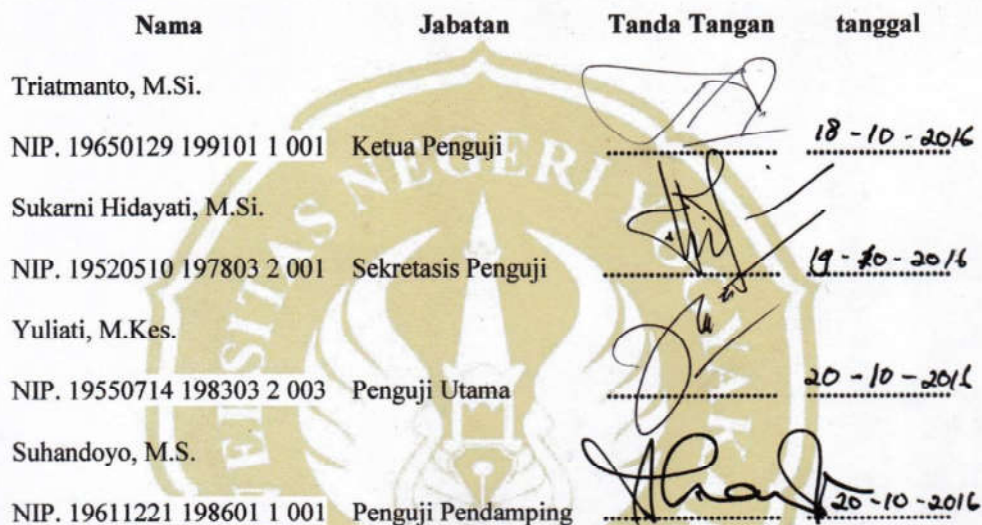 Nama Jabatan Tanda Tangan tanggal
Triatmanto, M.Si.
NIP. 19650129 199101 1 001 Ketua Penguji 18 - 10 - 2016
Sukarni Hidayati, M.Si.
NIP. 19520510 197803 2 001 Sekretasis Penguji 19 - 10 - 2016
Yuliati, M.Kes.
NIP. 19550714 198303 2 003 Penguji Utama 20 - 10 - 2016
Suhandoyo, M.S.
NIP. 19611221 198601 1 001 Penguji Pendamping 20 - 10 - 2016